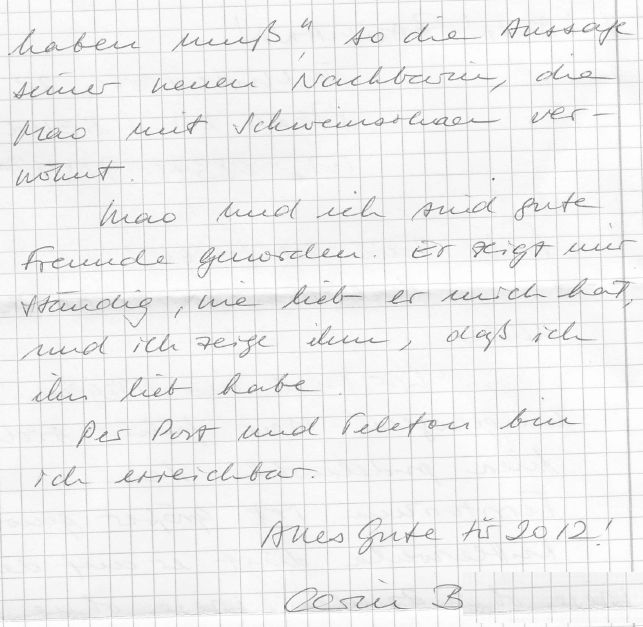 haben muß“, so die Aussage
seiner neuen Nachbarin, die
Mao mit Schweinsohren ver-
wöhnt.
Mao und ich sind gute
Freunde geworden. Er zeigt mir
ständig, wie lieb er mich hat,
und ich zeige ihm, daß ich
ihn lieb habe.
Per Post und Telefon bin
ich erreichbar.
Alles Gute für 2012!
Carin B